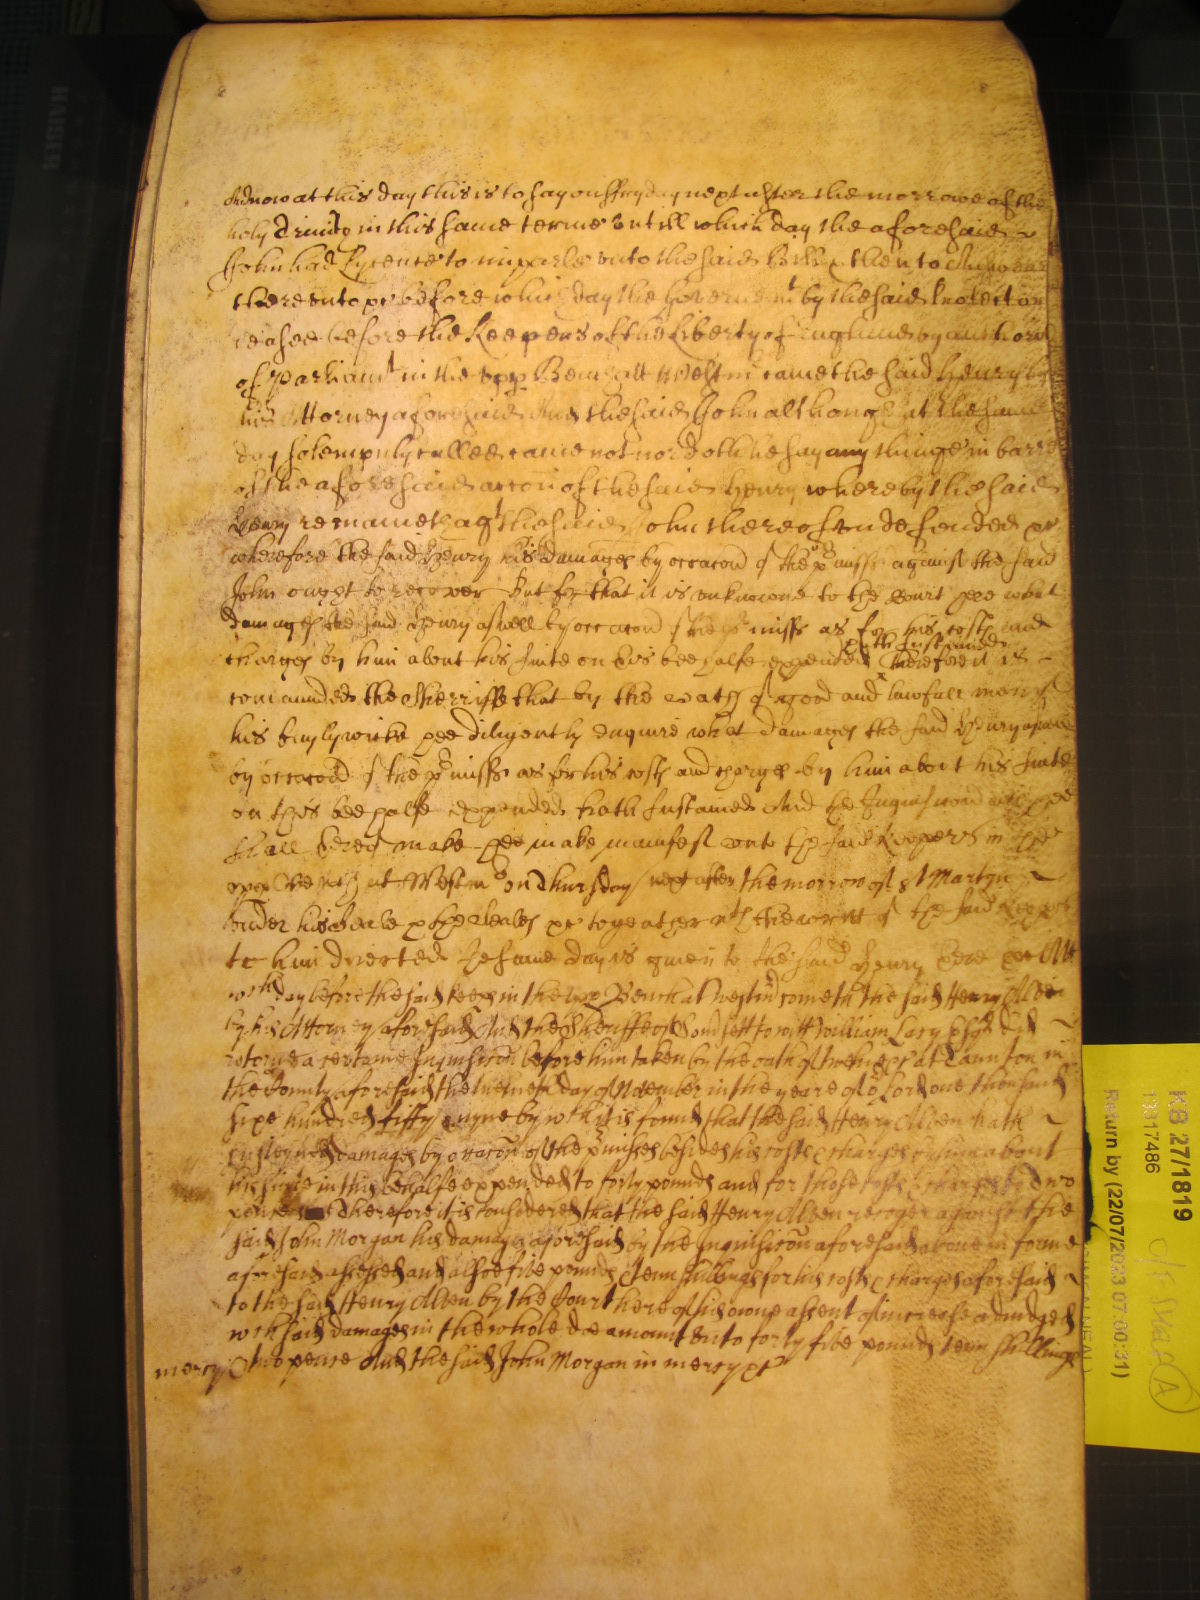 And now at this day this is to say on ffryday next after the morrowe of the
holy Trinity in this same terme untill which day the aforesaid
John had Lycence to imparle unto the said Bill & then to Answear
thereunto &c before which day the Governemt by the said Protector
ceased before the Keepers of the Liberty of England by authority
of Parliamt in the upp Bench att Westmr came the said Henry by
his Attorney aforesaid And the said John although att the same
day solempnly called came not nor doth hee say any thinge in barre
of the aforesaid accon of the said Henry whereby the said
Henry remaineth agt the said John thereof undefended &c
wherefore the said Henry his damages by occacon of the pmisses against the said
John ought to recover But for that it is unknowne to the Court here what
damages the said Henry aswell by occacon of the pmisses as for his costs and
hath susteined
charges by him about his suite on this beehalfe expended therefore it is
comaunded the Sherriffe that by the oaths of good and lawfull men of
his baylywicke hee diligently enquire what damages the said Henry aswell
by occacon of the pmisses as for his costs and charges by him about his suite
on this beehalfe expended hath sustained And the Inquisicon wch hee
shall thereof make hee make manifest unto the said Keepers in the
upp Bench at Westmr on Thursday next after the morrow of St Martyn
under his Seale & the Seales &c togeather wth the writt of the said Keepers
to him directed The same day is given to the said Henry here &c Att
wch day before the said Keeps in the upp Bench at Westmr cometh the said Henry Allen
by his Attorney aforesaid And the Sheriffe of Somersett to witt William Lacy Esqr did
retorne a certaine Inquisicon before him taken by the oath of twelve &c at Taunton in
the County aforesaid the day of November in the yeare of or Lord one thousand
sixe hundred fiffty nyne by wch it is found that the said Henry Allen hath
susteyned damages by occacon of the pmisses besides his costs & charges by him about
his suite in this behalfe expended to forty pounds and for those costs & charges to two
pence Therefore it is considered that the said Henry Allen recover against the
said John Morgan his damages aforesaid by the Inquisicon aforesaid above in forme
aforesaid assessed and alsoe five pounds & tenn shillings for his costs & charges aforesaid
to the said Henry Allen by the Court here of his owne assent of increase adiudged
wch said damages in the whole doe amount unto forty five pounds tenn shillings
mercy & two pence And the said John Morgan in mercy &c
KB 27/1819
13117486
Return by (22/07/2023 07:00:31)